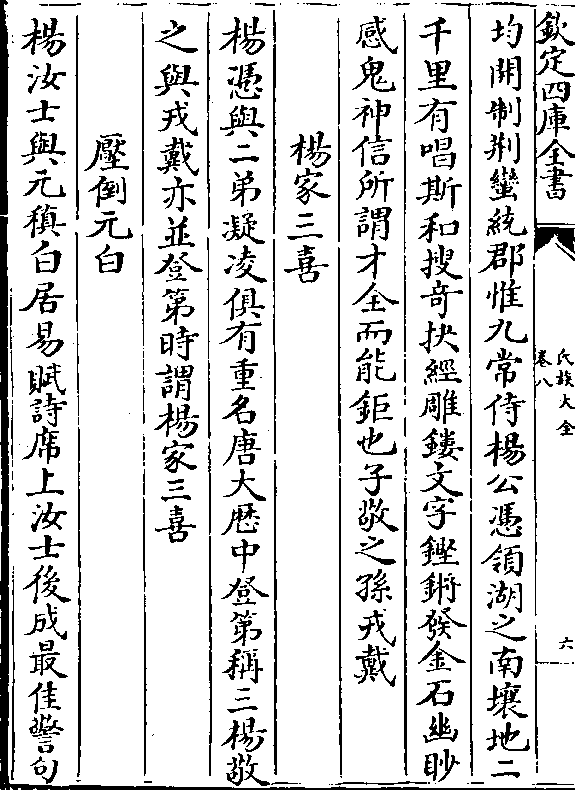 欽定四庫全書
氏族大全
卷八
六
均開制荆蠻統郡惟九常侍楊公憑領湖之南壤地二
千里有唱斯和搜奇抉經雕鏤文字鏗鏘發金石幽眇
感鬼神信所謂才全而能鉅也子敬之孫戎戴
楊家三喜
楊憑與二弟凝凌俱有重名唐大厯中登第稱三楊敬
之與戎戴亦並登第時謂楊家三喜
壓倒元白
楊汝士與元稹白居易賦詩席上汝士後成最佳警句